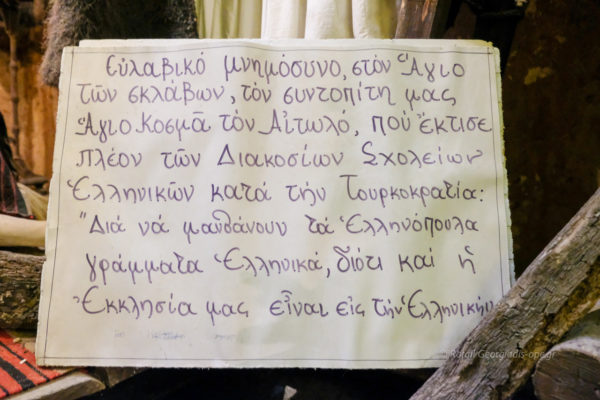 Εὐλαβικό μνημόσυνο, στόν Ἅγιο
τῶν σκλάβων, τόν συντοπίτη μας
Ἅγιο Κοσμᾶ τόν Αἰτωλό, πού ἔκτισε
πλέον τῶν Διακοσίων Σχολείων
Ἑλληνικῶν κατά τήν Τουρκοκρατία:
"Διά νά μανθάνουν τά Ἑλληνόπουλα
γράμματα Ἑλληνικά, διότι καί ἡ
Ἐκκλησία μας εἶναι εἰς τήν Ἑλληνικήν
© Rafail Georgiadis-ope.gr